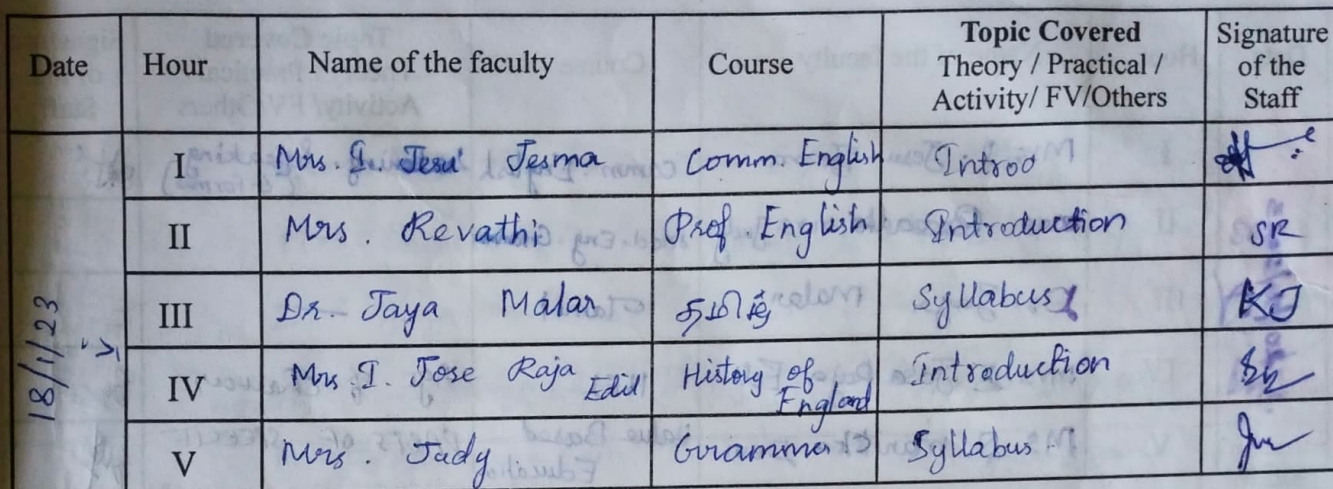 Date Hour Name of the faculty Course Topic Covered Theory / Practical / Activity/ FV/Others Signature of the Staff
18/1/23
I Mrs. I. Jesu Jesma Comm. English Introo
II Mrs. Revathi Prof. English Introduction SR
III Dr. Jaya Malar தமிழ் Syllabus KJ
IV Mrs I. Jose Raja Edil History of England Introduction
V Mrs. Judy Grammar Syllabus